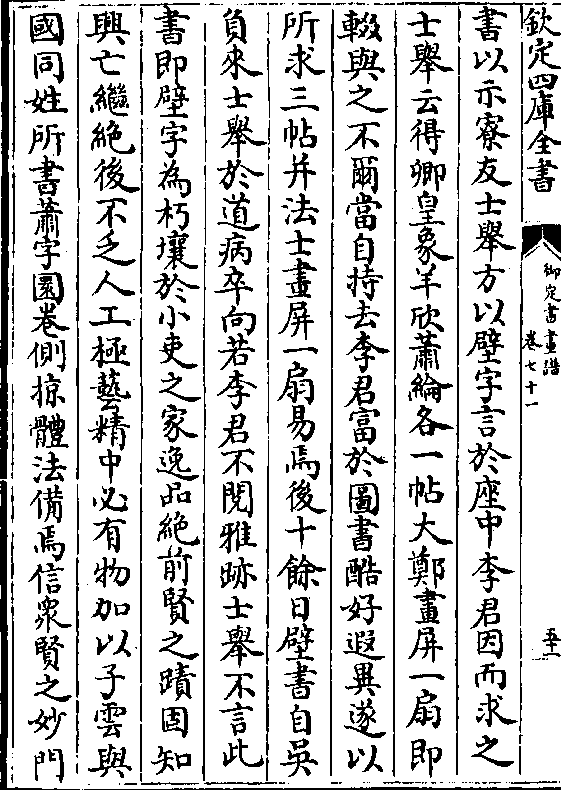 欽定四庫全書
御定書畫譜
卷七十一
五十一
書以示寮友士舉方以壁字言於座中李君因而求之
士舉云得卿皇象羊欣蕭綸各一帖大鄭畫屏一扇即
輟與之不爾當自持去李君富於圖書酷好遐異遂以
所求三帖并法士畫屏一扇易焉後十餘日壁書自吳
負來士舉於道病卒向若李君不閱雅跡士舉不言此
書即壁字為朽壤於小吏之家逸品絶前賢之蹟固知
興亡繼絶後不乏人工極藝精中必有物加以子雲與
國同姓所書蕭字圜卷側掠體法備焉信衆賢之妙門